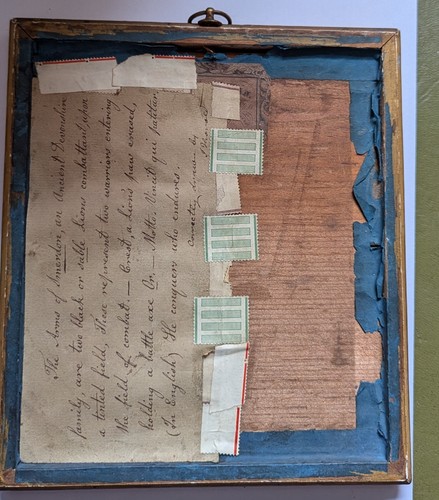 The Arms of Smerdon, an Ancient Devonshire
family, are two black or sable Lions combattant upon
a tented field, These represent two warriors entering
the field of combat. — Crest, a Lion's paw erased,
holding a battle axe Or — Motto. Vincit qui patitur
(In English) He conquers who endures.
Correctly drawn by